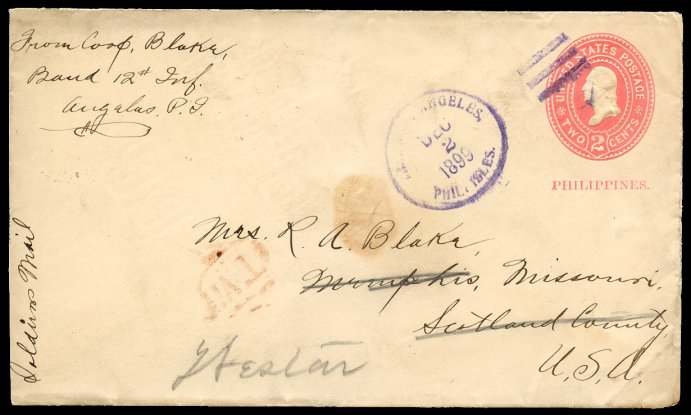 From Coop, Blake,
Band 12th Inf.
Angelas, P.I.
Soldiers Mail
ANGELES,
DEC
2
1899
PHIL. ISLES.
UNITED STATES POSTAGE
TWO 2 CENTS
PHILIPPINES.
Mrs. R. A. Blake,
Memphis, Missouri,
Scotland County,
U.S.A.